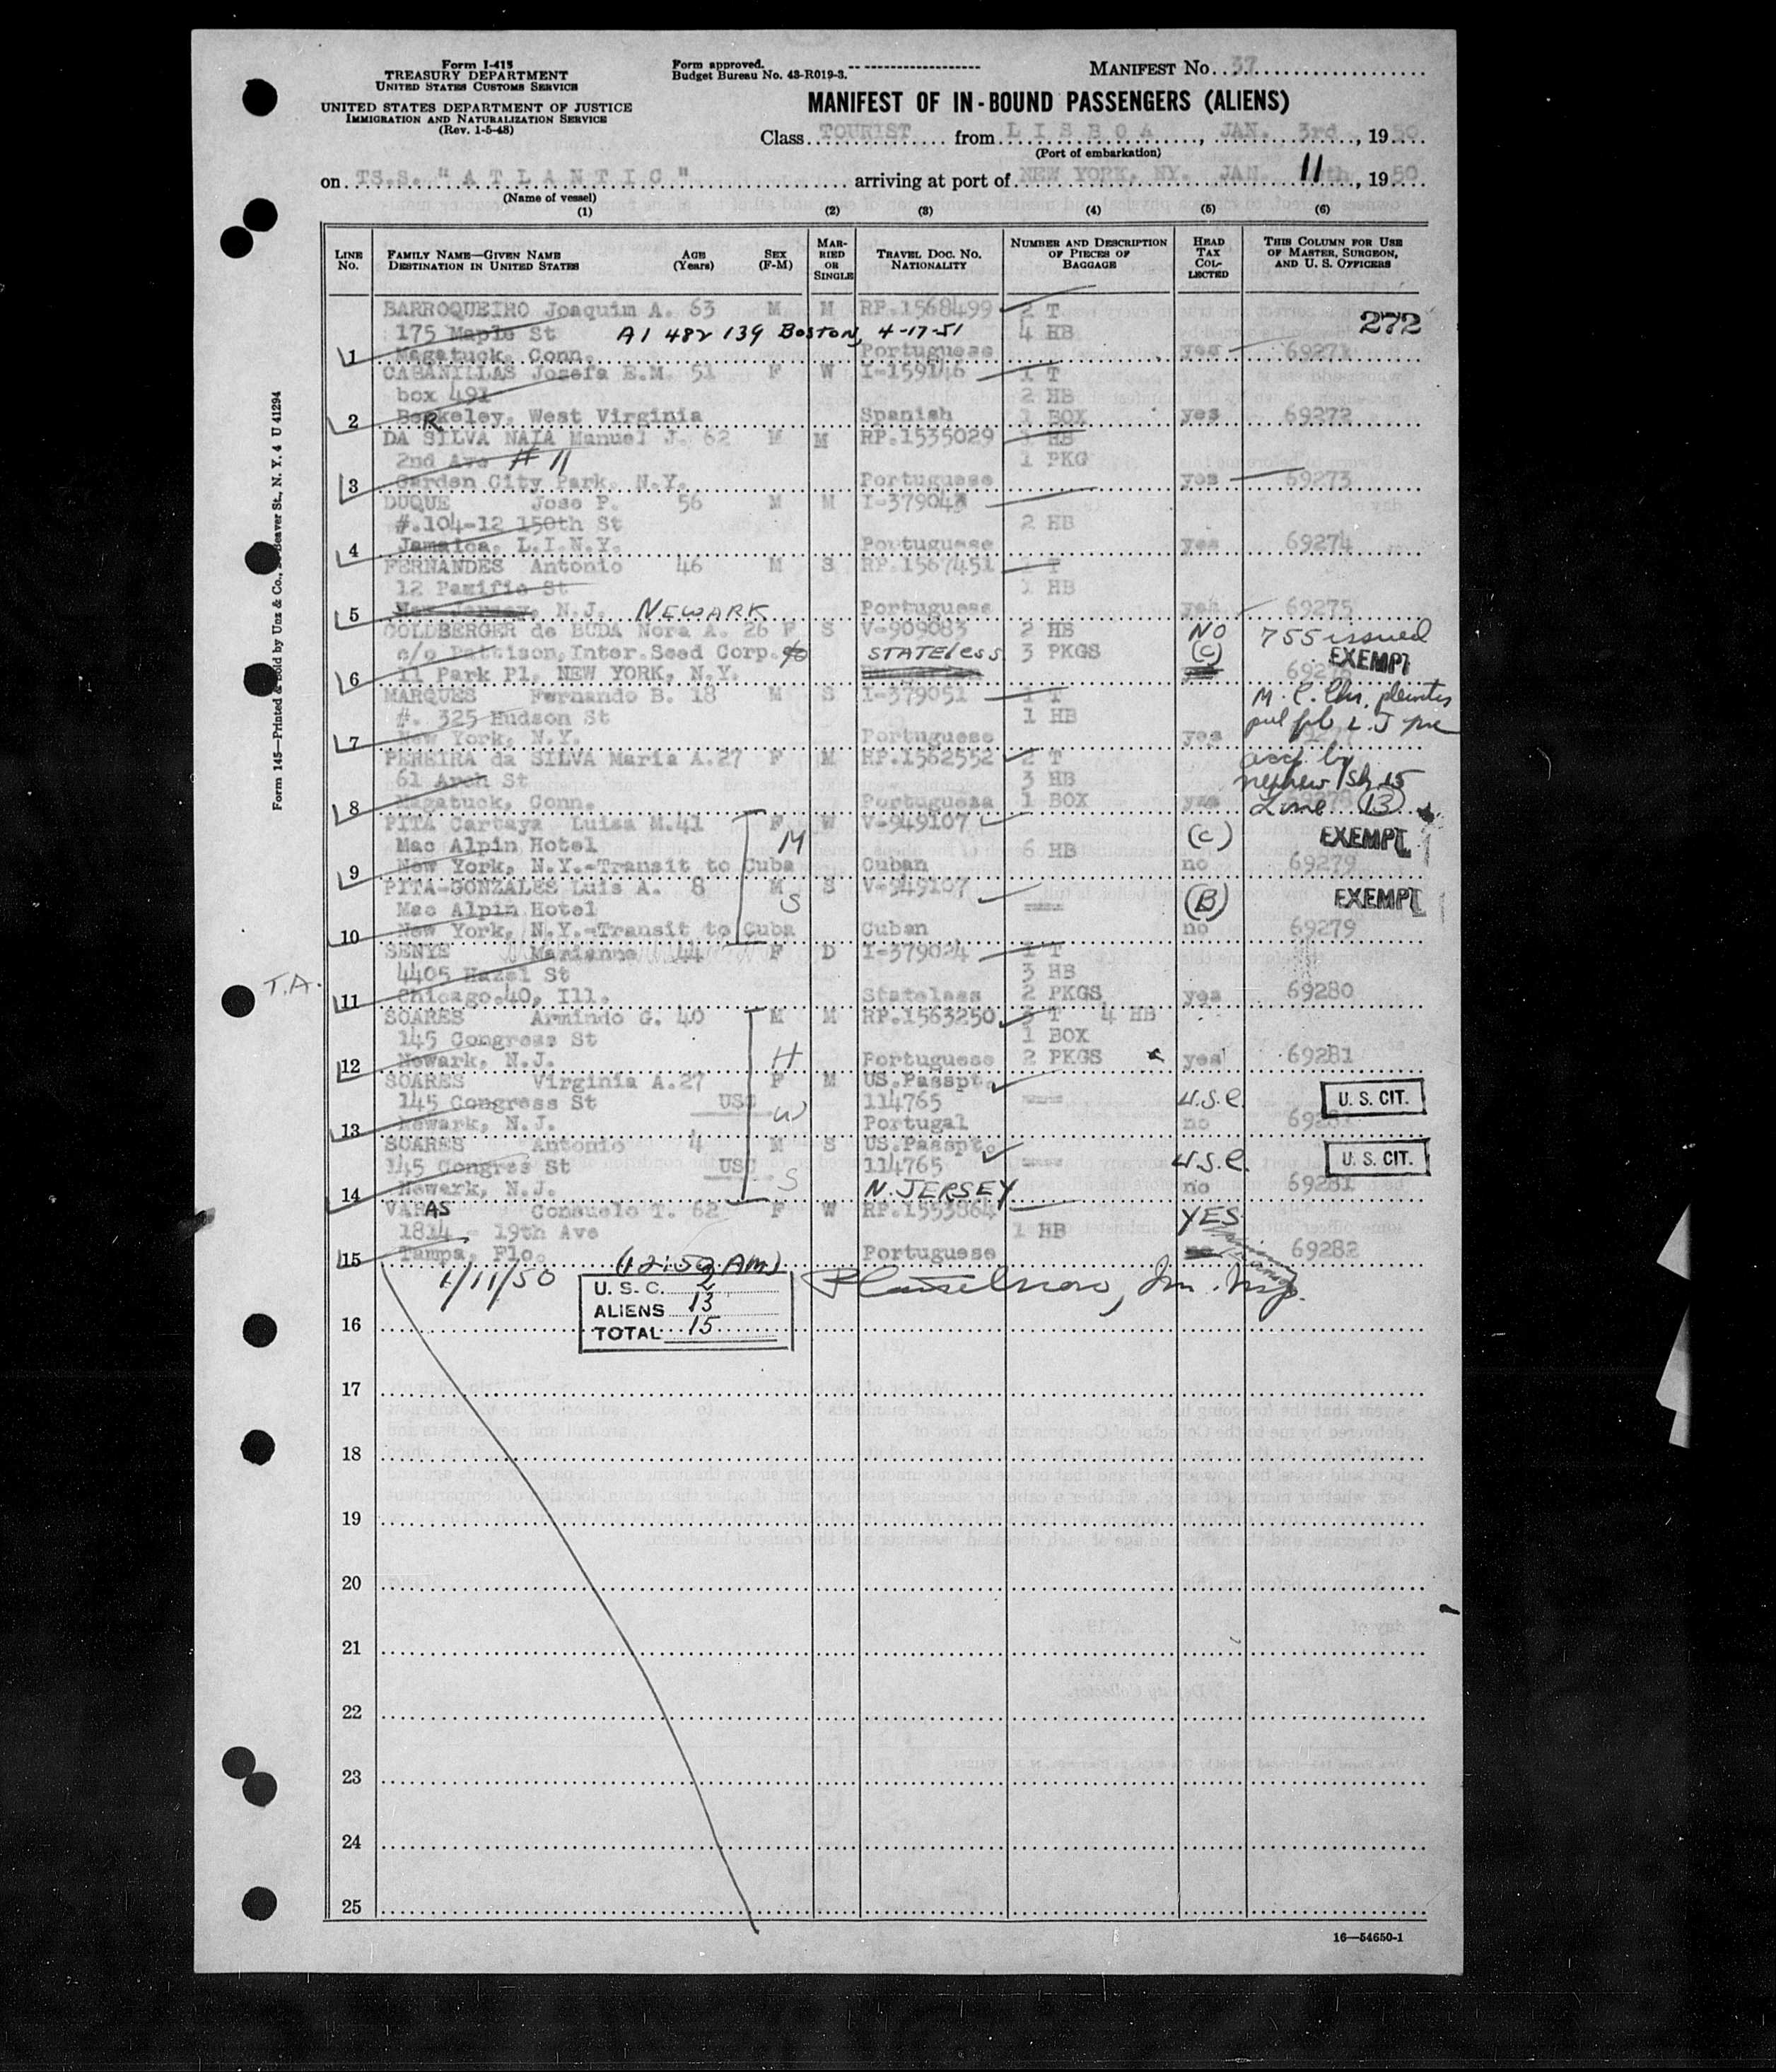 Form I-415
TREASURY DEPARTMENT
UNITED STATES CUSTOMS SERVICE
UNITED STATES DEPARTMENT OF JUSTICE
IMMIGRATION AND NATURALIZATION SERVICE
(Rev. 1-5-48)
Form approved.
Budget Bureau No. 43-R019-3.
MANIFEST No. 37
MANIFEST OF IN-BOUND PASSENGERS (ALIENS)
Class TOURIST from LISBOA, JAN. 3rd, 1950
(Port of embarkation)
on TS.S. "ATLANTIC" arriving at port of NEW YORK, NY. JAN. 11th, 1950
(Name of vessel)
(1) (2) (3) (4) (5) (6)
LINE No. FAMILY NAME—GIVEN NAME DESTINATION IN UNITED STATES AGE (Years) SEX (F-M) MARRIED OR SINGLE TRAVEL DOC. NO. NATIONALITY NUMBER AND DESCRIPTION OF PIECES OF BAGGAGE HEAD TAX COLLECTED THIS COLUMN FOR USE OF MASTER, SURGEON, AND U. S. OFFICERS
BARROQUEIRO Joaquim A. 63 M M RP.1568499 2 T
175 Maple St A1 482 139 Boston, 4-17-51 4 HB 272
1 Nagatuck, Conn. Portuguese yes 69271
CABANILLAS Josefa E.M. 51 F W I-159146 1 T
box 491 2 HB
2 BeRkeley, West Virginia Spanish 1 BOX yes 69272
DA SILVA NAIA Manuel J. 62 M M RP.1535029 1 HB
2nd Ave # 11 1 PKG
3 Garden City Park, N.Y. Portuguese yes 69273
DUQUE Jose P. 56 M M I-379048
#.104-12 150th St 2 HB
4 Jamaica, L.I.N.Y. Portuguese yes 69274
FERNANDES Antonio 46 M S RP.1567451 1 T
12 Pazific St 1 HB
5 New Jersey, N.J. NEWARK Portuguese yes 69275
GOLDBERGER de BUDA Nora A. 26 F S V-909083 2 HB NO 755 issued
c/o Pattison, Inter.Seed Corp. STATEless 3 PKGS (C) EXEMPT
6 11 Park Pl, NEW YORK, N.Y.
MARQUES Fernando B. 18 M S I-379051 1 T
#. 325 Hudson St 1 HB
7 New York, N.Y. Portuguese yes
PEREIRA da SILVA Maria A. 27 F M RP.1562552 2 T accp by
61 Arch St 3 HB nephew Sh 15
8 Nagatuck, Conn. Portuguesa 1 BOX yes Line (13)
PITA Cartaya Luisa M. 41 F W V-949107
Mac Alpin Hotel M 6 HB (C) EXEMPT
9 New York, N.Y.-Transit to Cuba Cuban no 69279
PITA-GONZALES Luis A. 8 M S V-949107
Mac Alpin Hotel S (B) EXEMPT
10 New York, N.Y.-Transit to Cuba Cuban no 69279
SENYE Marianne 44 F D I-379024 1 T
T.A. 4405 Hazel St 3 HB
11 Chicago.40, Ill. Stateless 2 PKGS yes 69280
SOARES Armindo G. 40 M M RP.1563250 3 T 4 HB
145 Congress St 1 BOX
12 Newark, N.J. H Portuguese 2 PKGS yes 69281
SOARES Virginia A. 27 F M US.Passpt.
145 Congress St USC W 114765 U.S.C. U. S. CIT.
13 Newark, N.J. Portugal no 69281
SOARES Antonio 4 M S US.Passpt.
145 Congres St USC S 114765 U.S.C. U. S. CIT.
14 Newark, N.J. N. JERSEY no 69281
VARAS Consuelo T. 62 F W RP.1553864 YES
1814 - 19th Ave 1 HB
15 Tampa, Flo. Portuguese 69282
1/11/50 (12:50 AM)
U. S. C. 2
ALIENS 13
TOTAL 15
16
17
18
19
20
21
22
23
24
25
16—54650-1